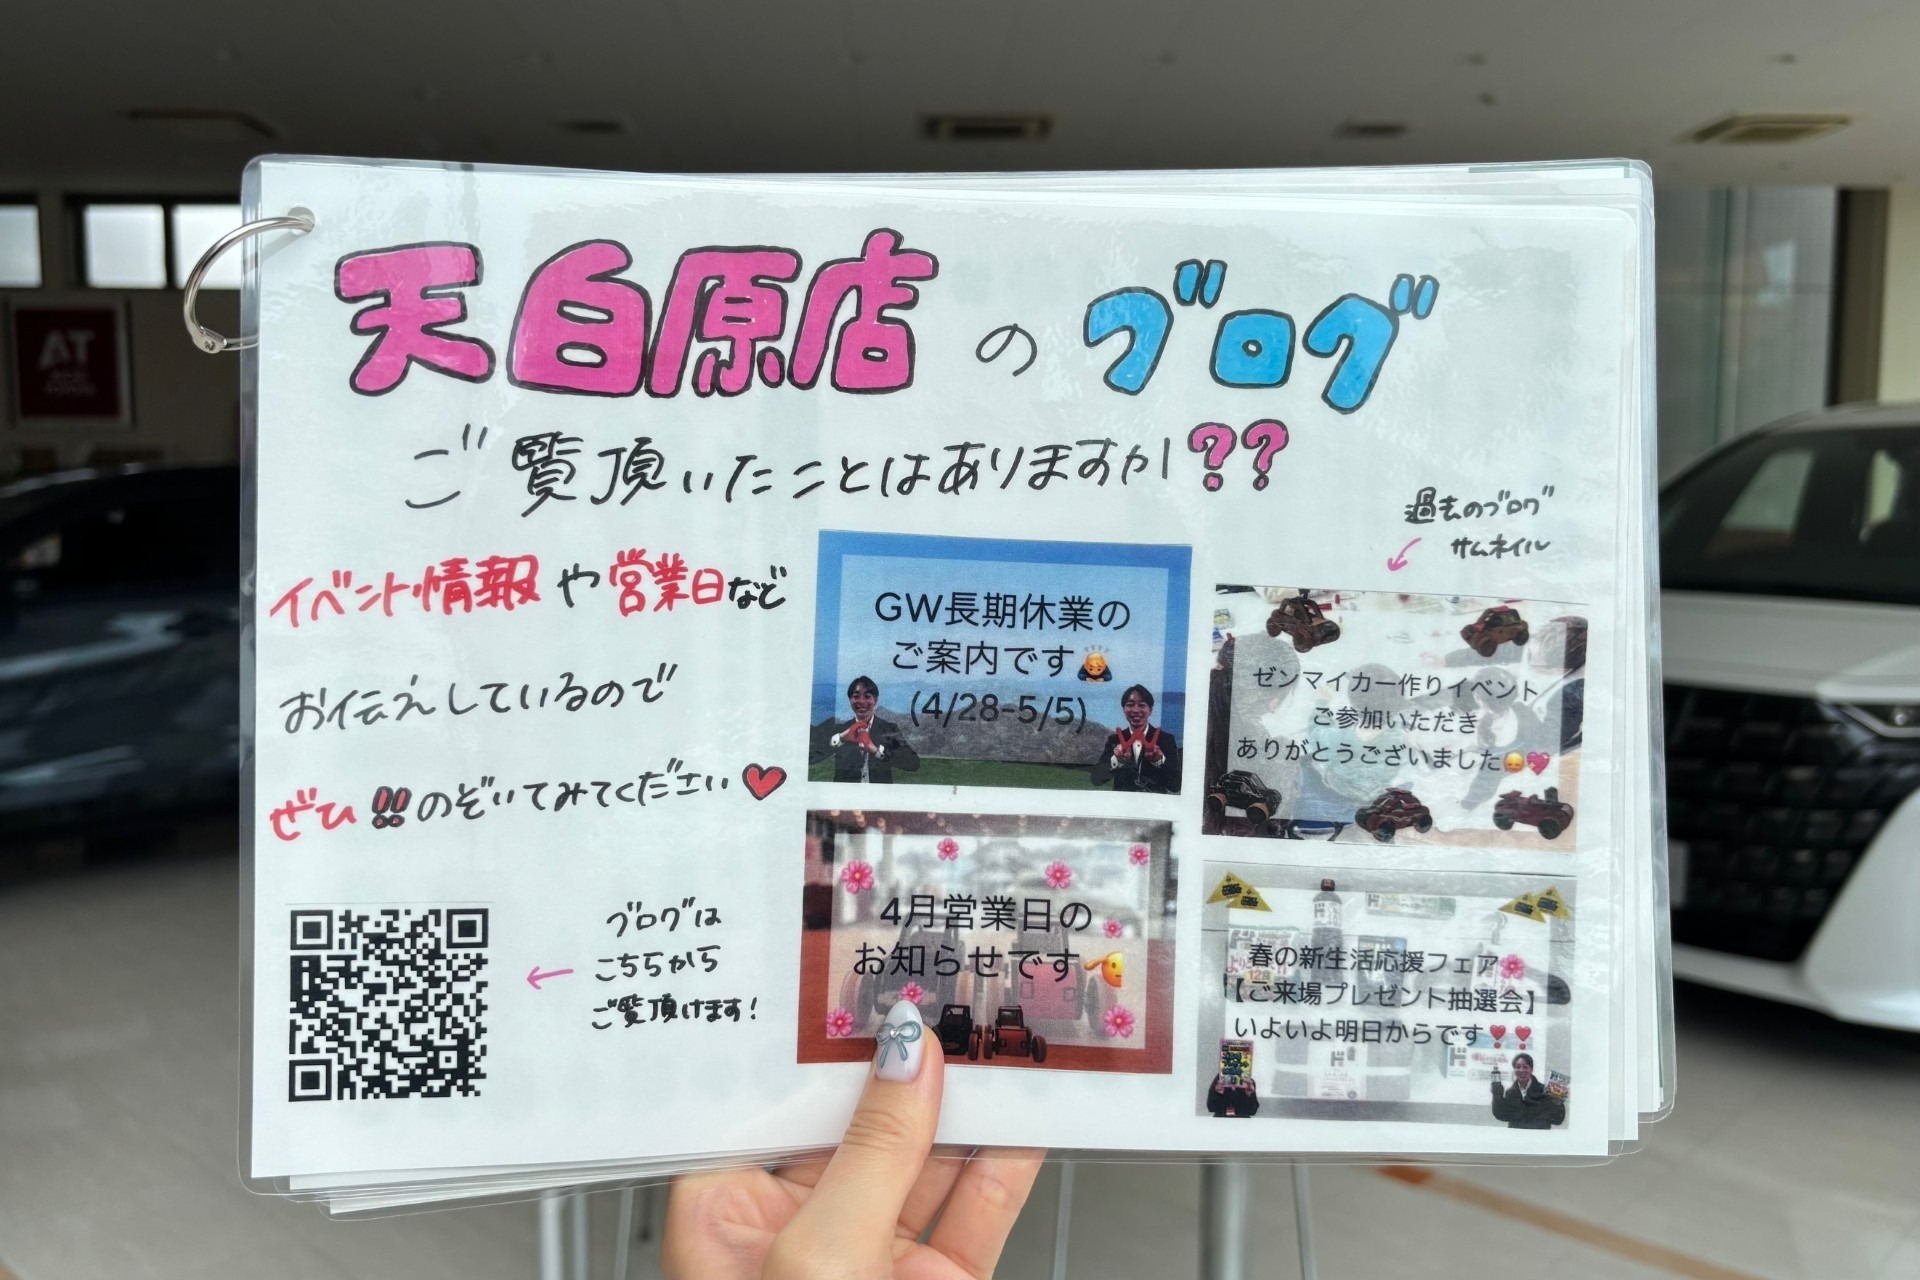 天白原店のブログ
ご覧頂いたことはありますか??
イベント情報や営業日など
お伝えしているので
ぜひ!!のぞいてみてください
ブログは
こちらから
ご覧頂けます!
過去のブログ
サムネイル
GW長期休業の
ご案内です
(4/28-5/5)
ゼンマイカー作りイベント
ご参加いただき
ありがとうございました
4月営業日の
お知らせです
春の新生活応援フェア
【ご来場プレゼント抽選会】
いよいよ明日からです
AT